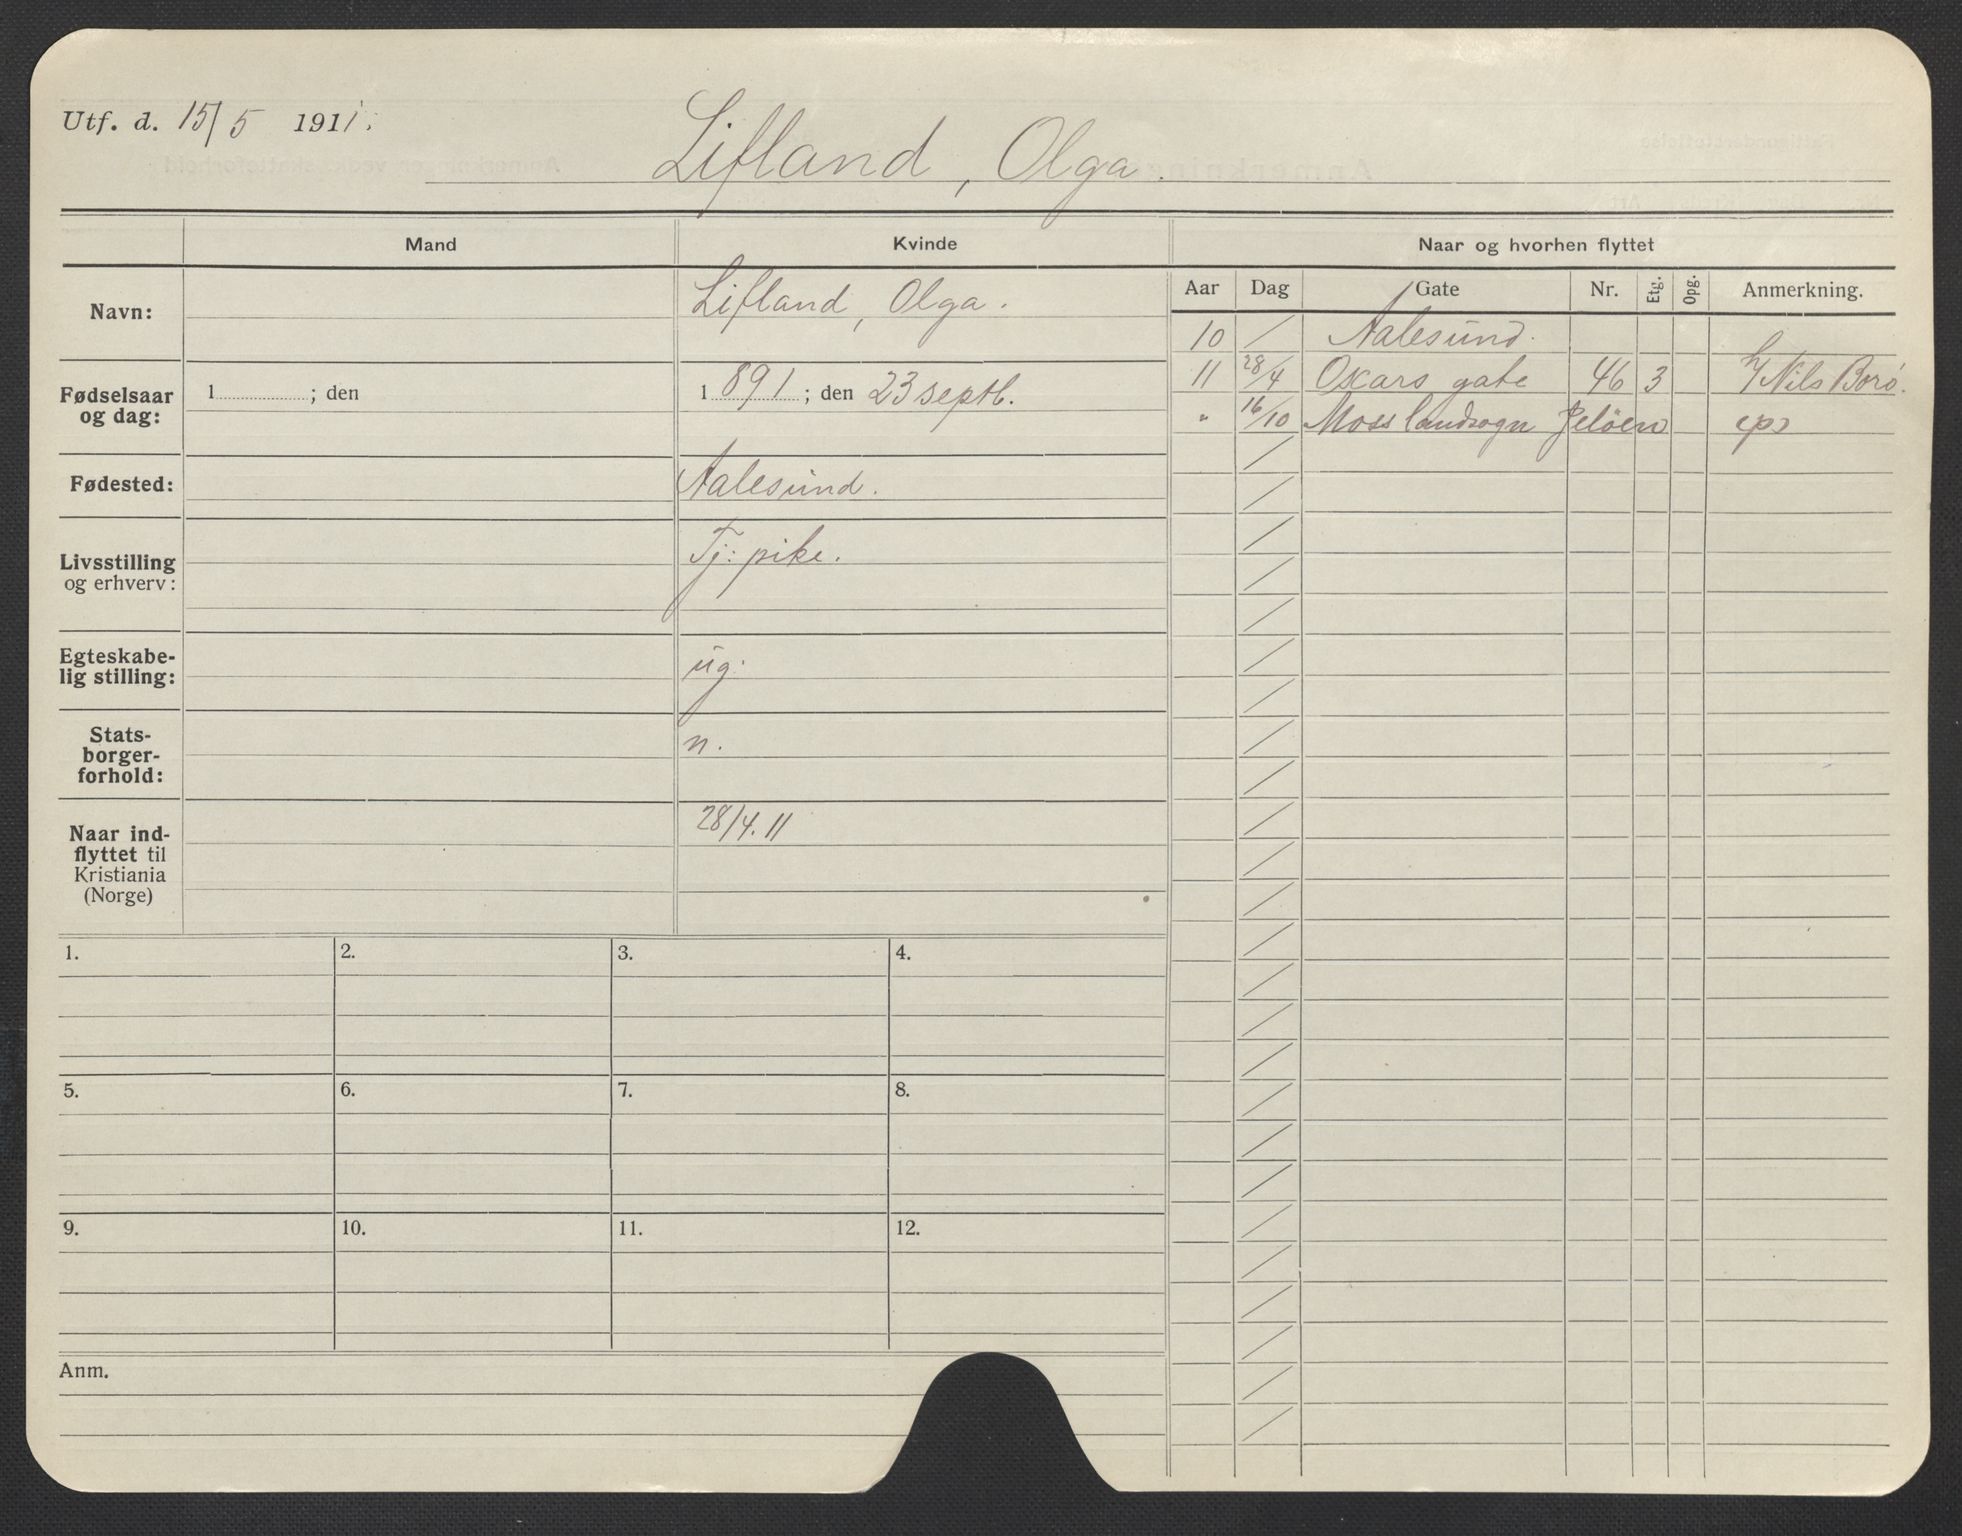 Utf. d. 15/5 1911.
Lifland, Olga.
Mand Kvinde Naar og hvorhen flyttet
Aar Dag Gate Nr. Etg. Opg. Anmerkning.
Navn: Lifland, Olga.
Fødselsaar og dag: 1 ; den 1 891 ; den 23 septb.
Fødested: Aalesund.
Livsstilling og erhverv: Tj: pike.
Egteskabe-
lig stilling: ug.
Stats-
borger-
forhold: n.
Naar ind-
flyttet til
Kristiania
(Norge) 28/4. 11
10 / Aalesund.
11 28/4 Oscars gate 46 3 h/ Nils Borø.
" 16/10 Moss landsogn Jeløen
1. 2. 3. 4.
5. 6. 7. 8.
9. 10. 11. 12.
Anm.